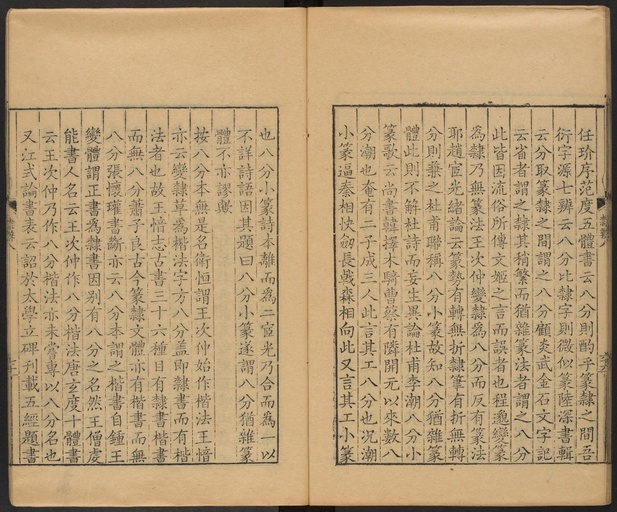 任玠序范度五體書云八分則酌乎篆隸之間吾
衍字源七辨云八分比隸字則微似篆陸深書輯
云分取篆隸之間謂之八分顧炎武金石文字記
云省者謂之隸其稍繁而猶雜篆法者謂之八分
此皆因流俗所傳文姬之言而誤者也程邈變篆
為隸乃無篆法王次仲變隸為八分而反有篆法
耶趙宧光緒論云篆勢有轉無折隸筆有折無轉
分則兼之杜甫聯稱八分小篆故知八分猶雜篆
體此則不解杜詩而妄生異論杜甫李潮八分小
篆歌云尚書韓擇木騎曹蔡有隣開元以來數八
分潮也奄有二子成三人此言其工八分也况潮
小篆逼秦相快劒長戟森相向此又言其工小篆
也八分小篆詩本離而為二宧光乃合而為一以
不詳詩語因其題曰八分小篆遂謂八分猶雜篆
體不亦謬歟
按八分本無是名衛恒謂王次仲始作楷法王愔
亦云變隸草為楷法字方八分盖即隸書而有楷
法者也故王愔志古書三十六種目有隸書楷書
而無八分蕭子良古今篆隸文體亦有楷書而無
八分張懷瓘書斷亦云八分本謂之楷書自鍾王
變體謂正書為隸書因别有八分之名然王僧虔
能書人名云王次仲作八分楷法唐玄度十體書
云王次仲乃作八分楷法亦未嘗專以八分名也
又江式論書表云詔於太學立碑刊載五經題書